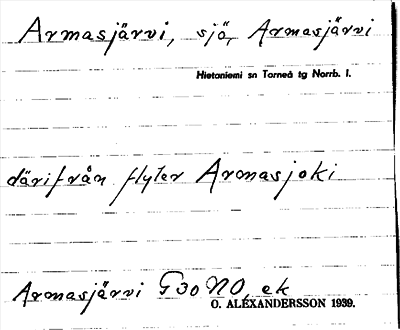 Armasjärvi, sjö, Armasjärvi
Hietaniemi sn Torneå tg Norrb. l.
därifrån flyter Armasjoki
Armasjärvi G30NO, ek
O. ALEXANDERSSON 1939.